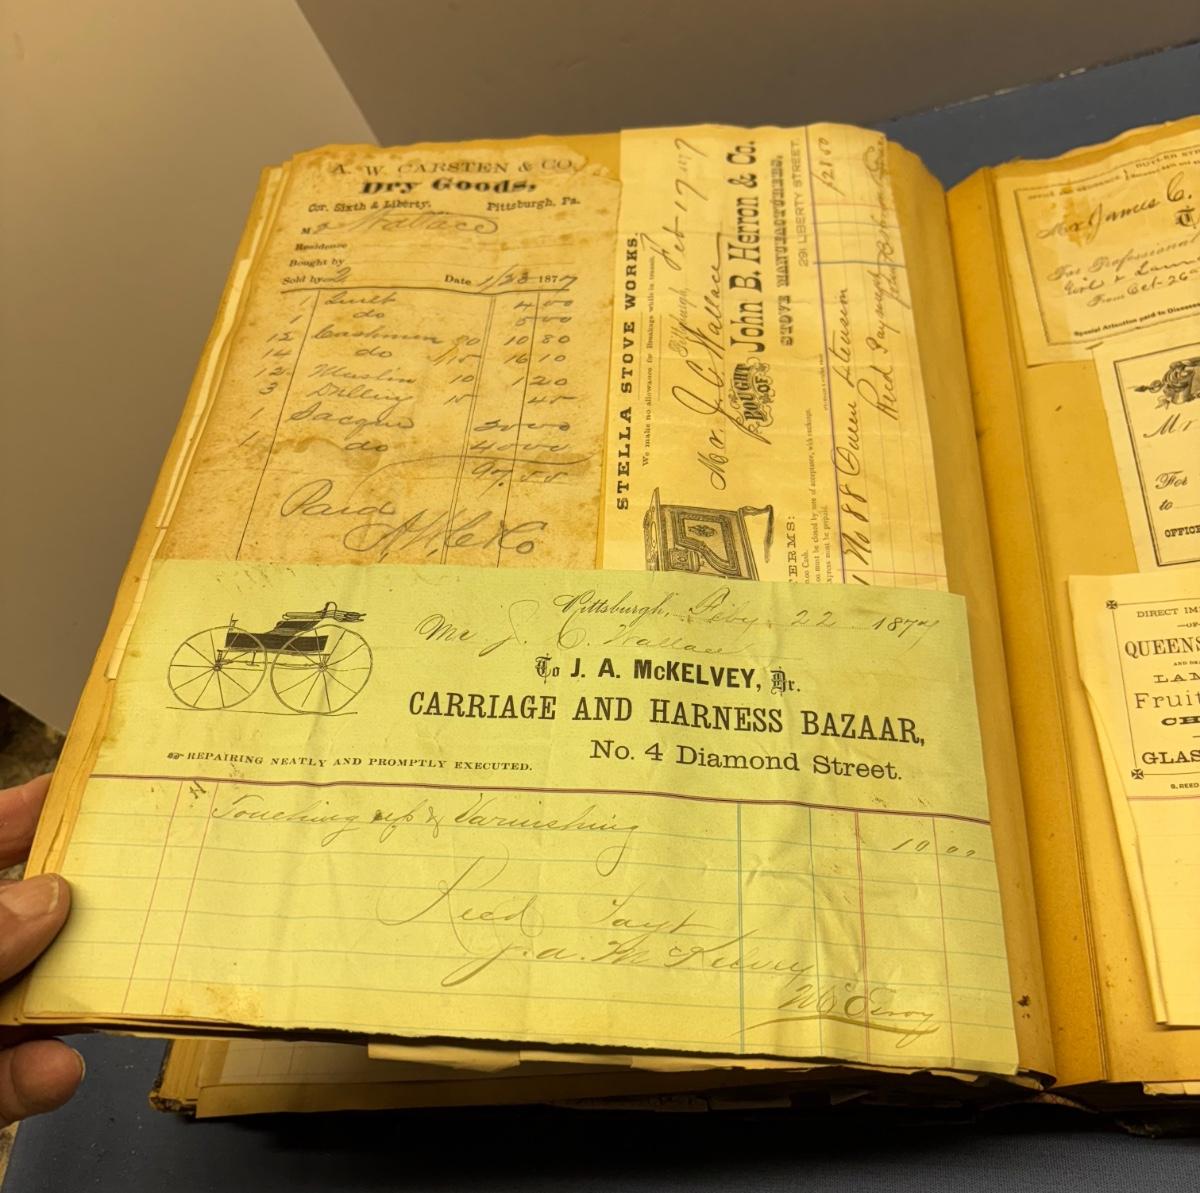 A. W. CARSTEN & CO.
Dry Goods,
Cor. Sixth & Liberty. Pittsburgh, Pa.
M Wallace
Residence
Bought by
Sold by 2 Date 1/23 1877
1 Quilt 4 00
1 do 5 00
12 Cashmere 90 10 80
14 do 1/15 16 10
12 Muslin 10 1 20
3 15 45
1 Sacque
1 do 40 00
97.55
Paid
A.W.C & Co
STELLA STOVE WORKS.
We make no allowance for Breakage while in transit.
Pittsburgh, Feb 17 1877
Mr. J. C. Wallace
BOUGHT OF John B. Herron & Co.
STOVE MANUFACTURERS,
291 LIBERTY STREET.
TERMS:
must be closed by note of acceptance, with exchange.
express must be prepaid.
1 No 88 Queen $21.50
Recd Payment
Pittsburgh, Feby 22 1877
Mr J. C. Wallace
To J. A. McKELVEY, Dr.
CARRIAGE AND HARNESS BAZAAR,
No. 4 Diamond Street.
REPAIRING NEATLY AND PROMPTLY EXECUTED.
Touching up & Varnishing 10 00
Recd Payt
J. A. McKelvey
McElroy
BUTLER STR
OFFICE AND RESIDENCE
Mr James C.
For Professional
Girl &
From Oct-26
Special Attention paid to Disea
Mr
For
to
OFFIC
DIRECT IM
—OF—
QUEENS
AND
LAM
Fruit
CH
GLAS
S. REED